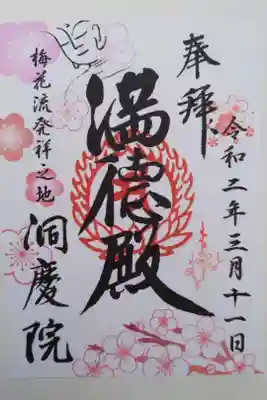 奉拝
令和二年三月十一日
満徳殿
梅花流発祥之地
洞慶院